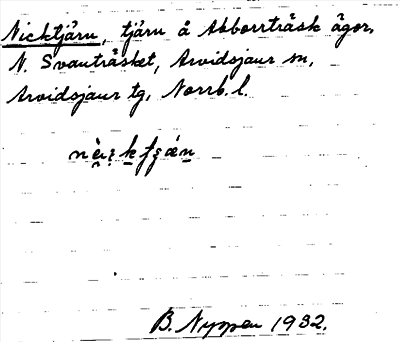 Nicktjärn, tjärn å Abborrträsk ägor,
N. Svanträsket, Arvidsjaur sn,
Arvidsjaur tg, Norrb. l.
B. Nyman 1932.